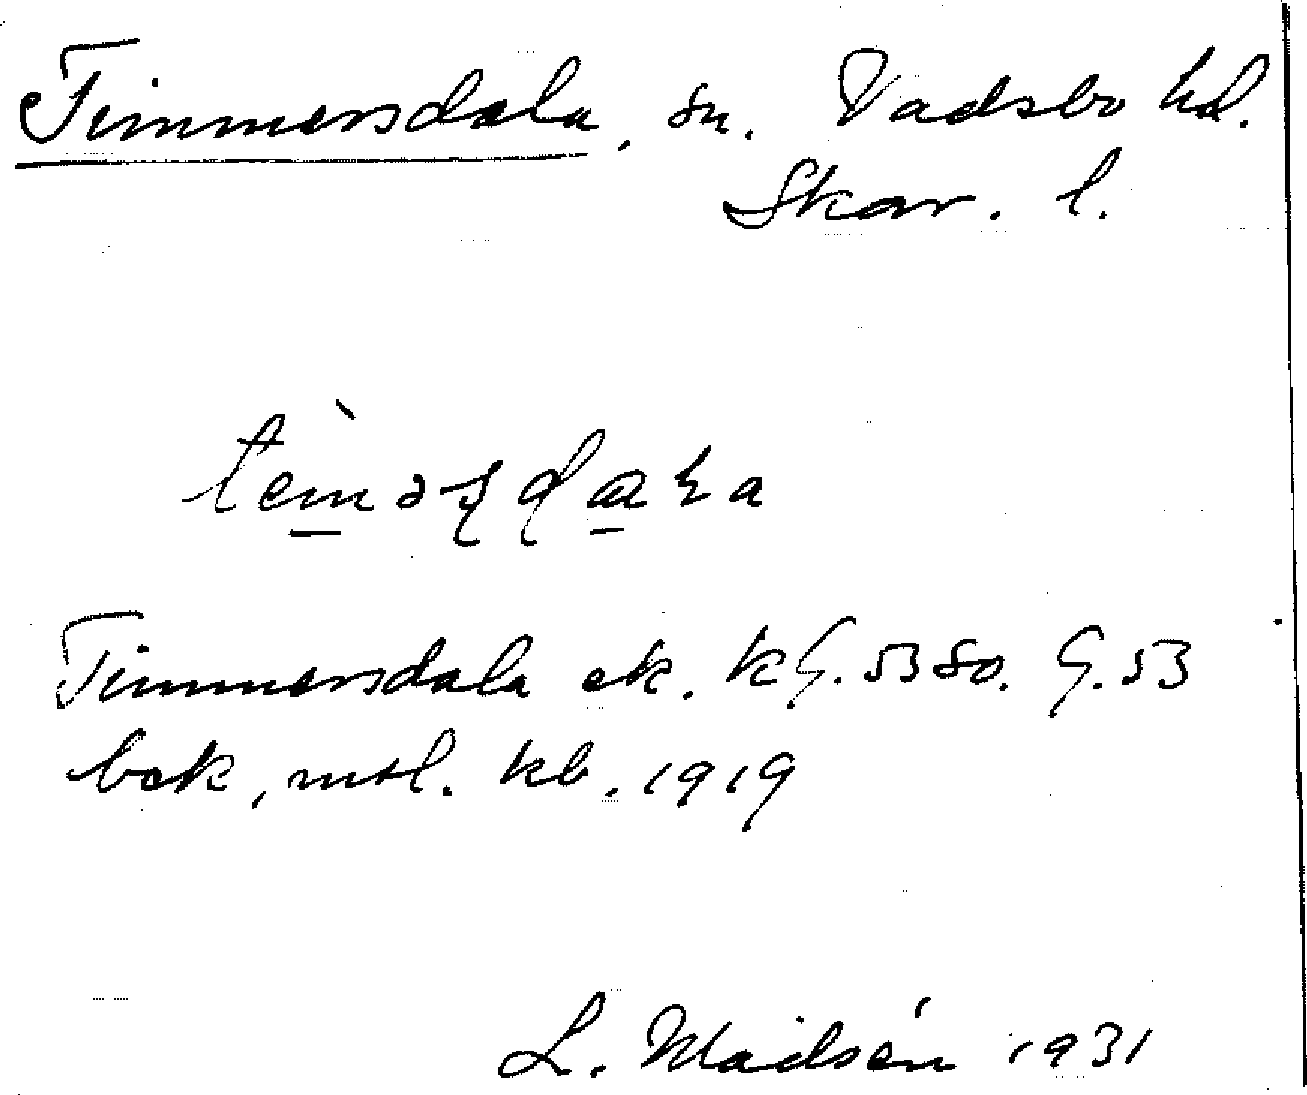 Timmersdala, sn. Vadsbo hd.
Skar. l.
Timmersdala ek. kG. 53 so. G. 53
bek, mtl. kb. 1919
L. Mailsén 1931